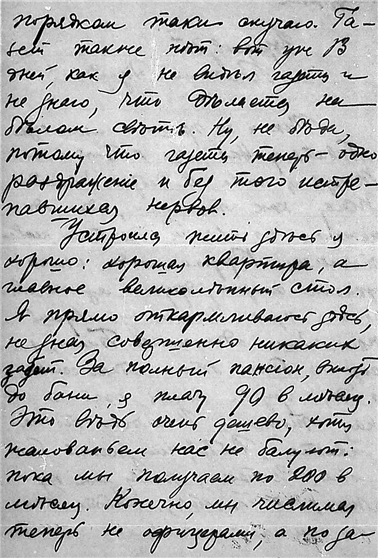 порядком таки скучаю. Га-
зет также нѣт: вот уже 13
дней, как я не видѣл газеты и
не знаю, что дѣлается на
бѣлом свѣтѣ. Ну, не бѣда,
потому что газеты теперь – одно
раздраженіе и без того истре-
павшихся нервов.
Устроился жить здѣсь я
хорошо: хорошая квартира, а
главное великолѣпный стол.
Я прямо откармливаюсь здѣсь,
не зная совершенно никаких
задот. За полный пансіон, вплоть
до бани, я плачу 90 в мѣсяц.
Это вѣдь очень дешево, хотя
жалованьем нас не балуют:
пока мы получаем по 200 в
мѣсяц. Конечно, мы числимся
теперь не офицерами, а по за-